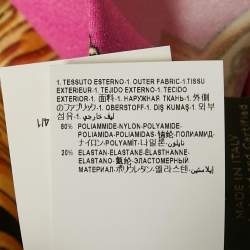 1. TESSUTO ESTERNO-1. OUTER FABRIC-1.TISSU
EXTERIEUR-1. TEJIDO EXTERNO-1. TECIDO
EXTERIOR-1. 面料-1. НАРУЖНАЯ ТКАНЬ-1. 外側
のファブリック-1. OBERSTOFF-1. DIŞ KUMAŞ-1. 외부
섬유-1. ليف خارجي
80% POLIAMMIDE-NYLON-POLYAMIDE-
POLIAMIDA-POLIAMIDAS-锦纶-ПОЛИАМИД-
ナイロン-POLYAMIT-나일론-نايلون
20% ELASTAN-ELASTANE-ELASTHANNE-
ELASTANO-氨纶-ЭЛАСТОМЕРНЫЙ
МАТЕРИАЛ-ポリウレタン-엘라스탄-
إيلاستين
IN ITALY